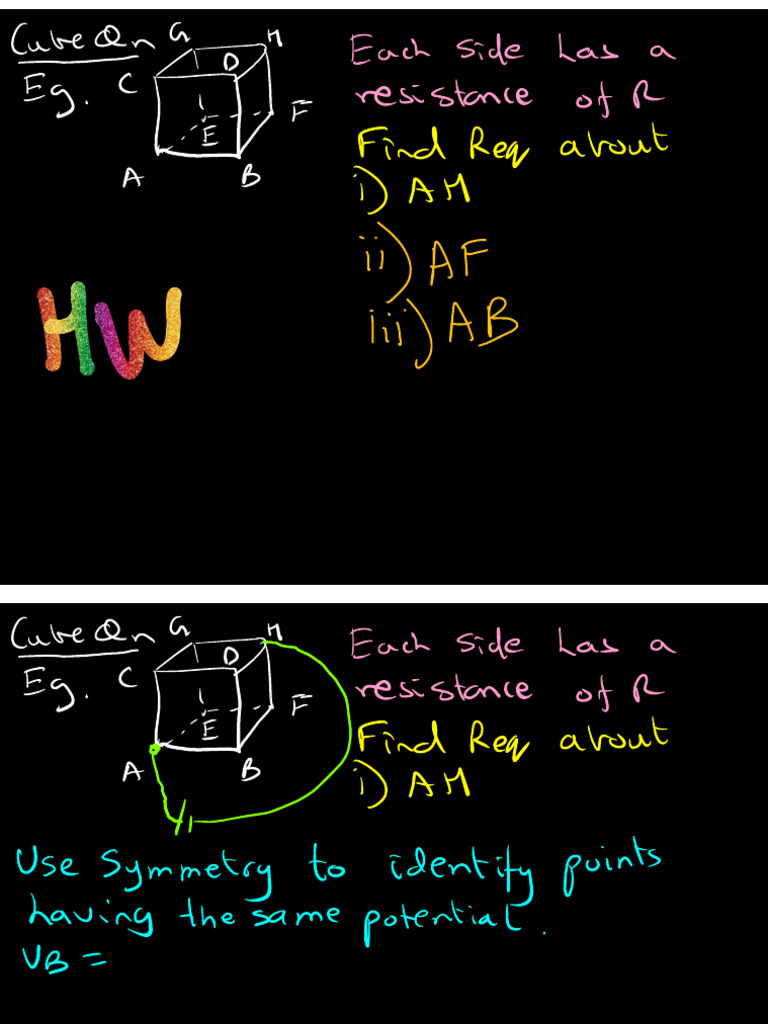 Cube Qn
Eg.
G
H
C
D
E
F
A
B
Each side has a
resistance of R
Find Req about
i) AH
ii) AF
iii) AB
HW
Cube Qn
Eg.
G
H
C
D
E
F
A
B
Each side has a
resistance of R
Find Req about
i) AH
Use Symmetry to identify points
having the same potential.
VB =